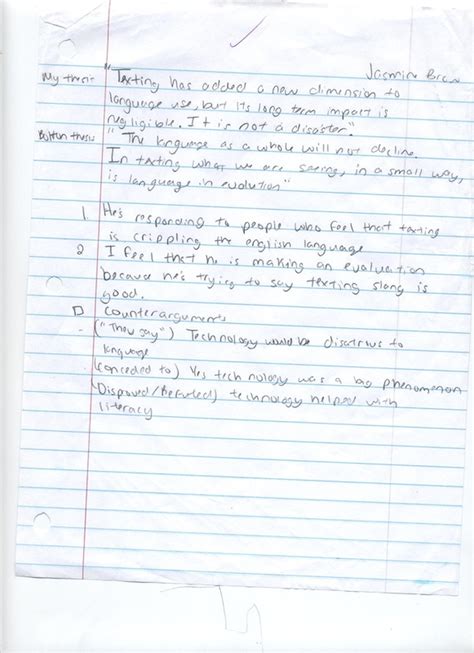 Jasmine
My thesis "Texting has added a new dimension to
language use, but its long term impact is
negligible. It is not a disaster."
thesis "The language as a whole will not decline.
In texting what we are seeing, in a small way,
is language in evolution"
1. He's responding to people who feel that texting
is crippling the english language
2 I feel that he is making an evaluation
because he's trying to say texting slang is
good.
Counterarguments
- ("They say") Technology would be disatrous to
language
(conceded to) Yes technology was a big phenomenon
(Disproved/Refuted) technology helped with
literacy